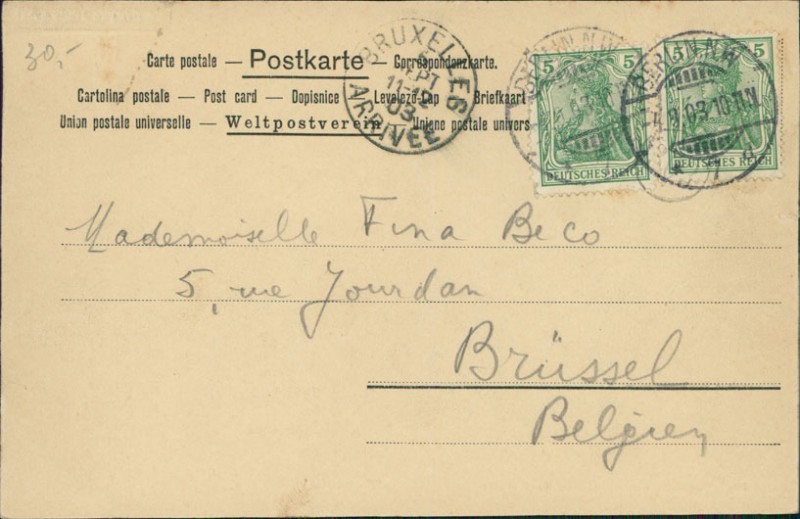 30,-
Carte postale — Postkarte — Correspondenzkarte.
Cartolina postale — Post card — Dopisnice — Levelező-Lap — Briefkaart
Union postale universelle — Weltpostverein — Unione postale univers
BRUXELLES
SEPT
11-12
03
ARRIVÉE
5 5
DEUTSCHES REICH
5 5
DEUTSCHES REICH
BERLIN N.W.
BERLIN N.W.
Mademoiselle Fina Beco
5, rue Jourdan
Brüssel
Belgien